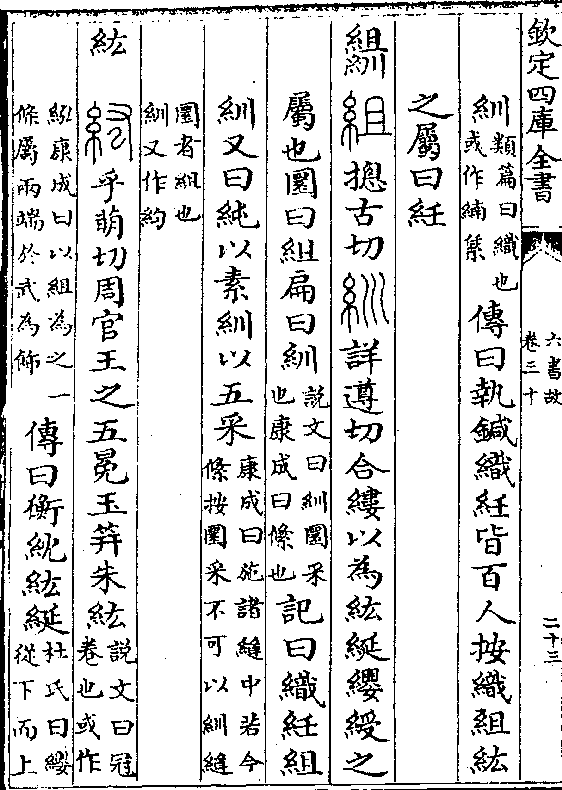 欽定四庫全書
六書故
卷三十
二十三
紃類篇曰織也或作緉䋶傳曰執鍼織紝皆百人按織組紘
之屬曰紝
組紃 組摠古切紃詳遵切合縷以為紘綖纓綬之
屬也圜曰組扁曰紃說文曰紃圜采也康成曰絛也記曰織紝組
紃又曰純以素紃以五采康成曰施諸縫中若今絛按圜采不可以紃縫
圜者組也紃又作約
紘 紘乎萌切周官王之五冕玉笄朱紘說文曰冠卷也或作
紭康成曰以組為之一條屬兩端於武為飾傳曰衡紞紘綖杜氏曰纓從下而上